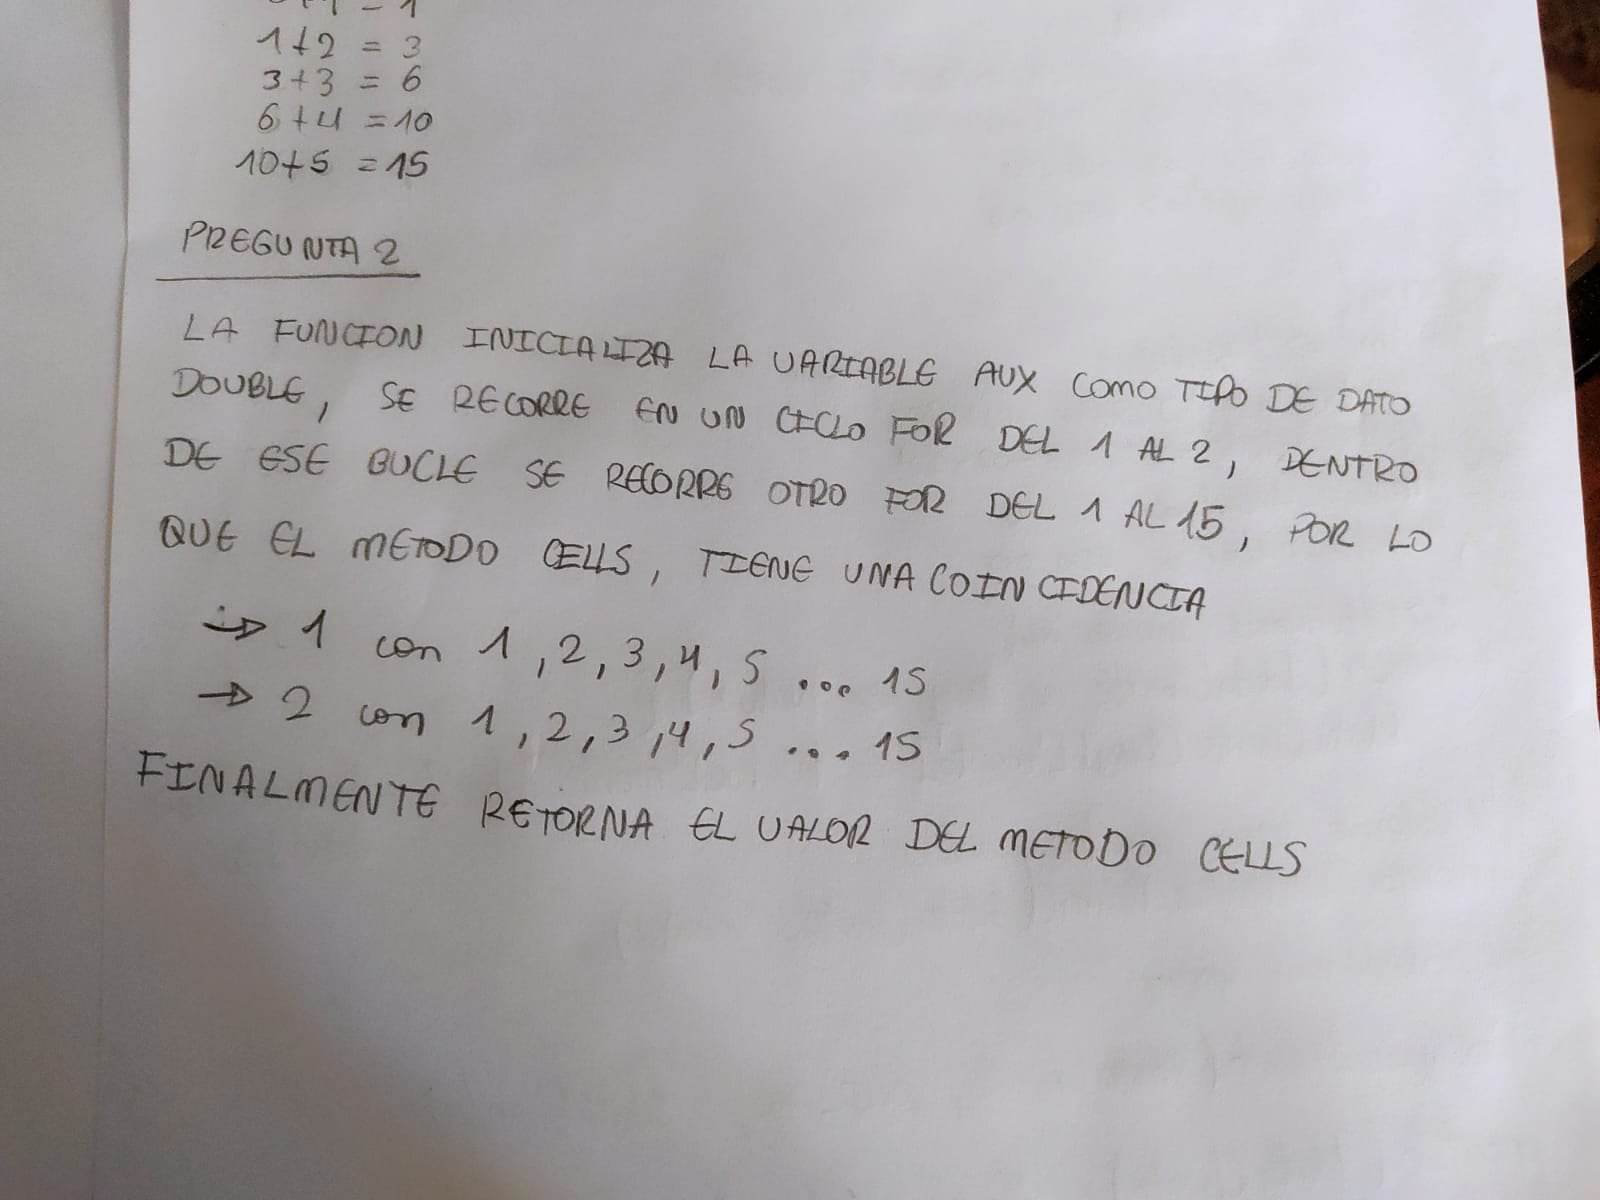 1+2 = 3
3+3 = 6
6+4 = 10
10+5 = 15
PREGUNTA 2
LA FUNCION INICIALIZA LA VARIABLE AUX COMO TIPO DE DATO
DOUBLE, SE RECORRE EN UN CICLO FOR DEL 1 AL 2, DENTRO
DE ESE BUCLE SE RECORRE OTRO FOR DEL 1 AL 15, POR LO
QUE EL METODO CELLS, TIENE UNA COINCIDENCIA
→ 1 con 1, 2, 3, 4, 5 ... 15
→ 2 con 1, 2, 3, 4, 5 ... 15
FINALMENTE RETORNA EL VALOR DEL METODO CELLS